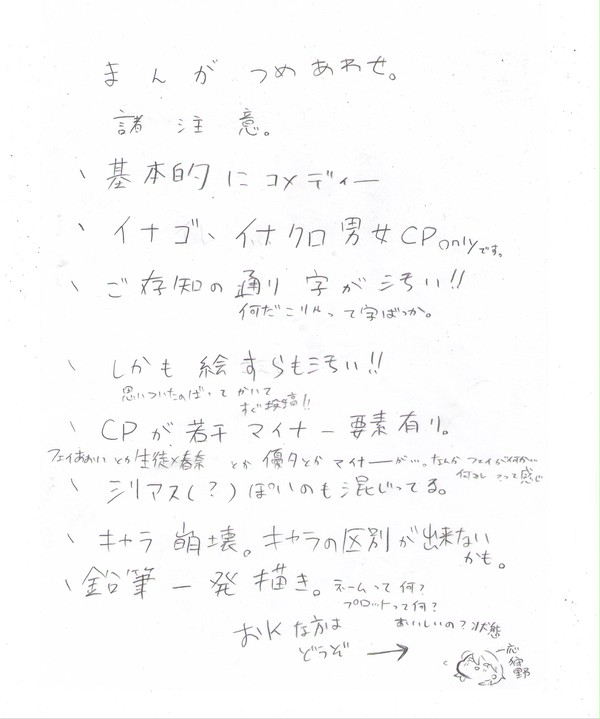 まんがつめあわせ。
諸注意。
、基本的にコメディー
、イナゴ、イナクロ男女CPonlyです。
、ご存知の通り字が汚い!!
何だこりゃって字ばっか。
、しかも絵すらも汚い!!
思いついたのばって かいて
すぐ投稿!!
、CPが若干マイナー要素有り。
フェイあおい とか 生徒×春奈 とか 優夕とか マイナーーが…。なんか フェイが何か…
何コレ?って感じ
、シリアス(?)ぽいのも混じってる。
、キャラ崩壊。キャラの区別が出来ない
かも。
、鉛筆一発描き。ネームって何?
プロットって何?
おいしいの?状態
おKな方は
どうぞ →
一応狩野